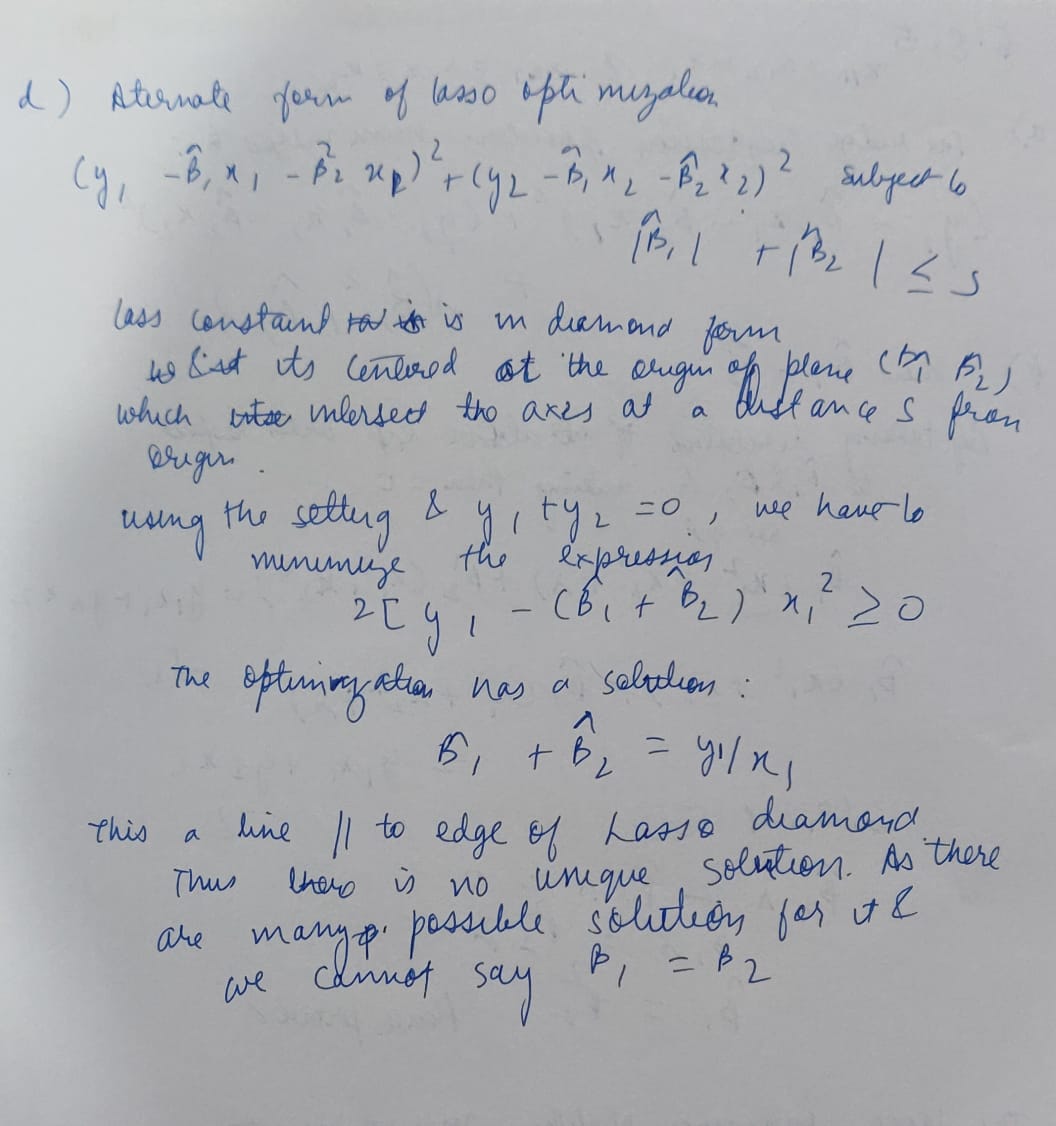 d) Aternate form of lasso optimization
(y₁ - β̂₁ x₁ - β̂₂ x₁)² + (y₂ - β̂₁ x₂ - β̂₂ x₂)² subject to
|β̂₁| + |β̂₂| ≤ s
lass constaint is in diamond form
its centered at the origin of plane (β₁ β̂₂)
which intersect the axes at a distance s from
origin.
using the setting & y₁ + y₂ = 0, we have to
minimize the expression
2[y₁ - (β̂₁ + β̂₂) x₁² ≥ 0
The optimization has a solution:
β̂₁ + β̂₂ = y₁/x₁
This a line // to edge of Lasso diamond.
Thus there is no unique solution. As there
are many possible solution for it &
we cannot say β₁ = β₂